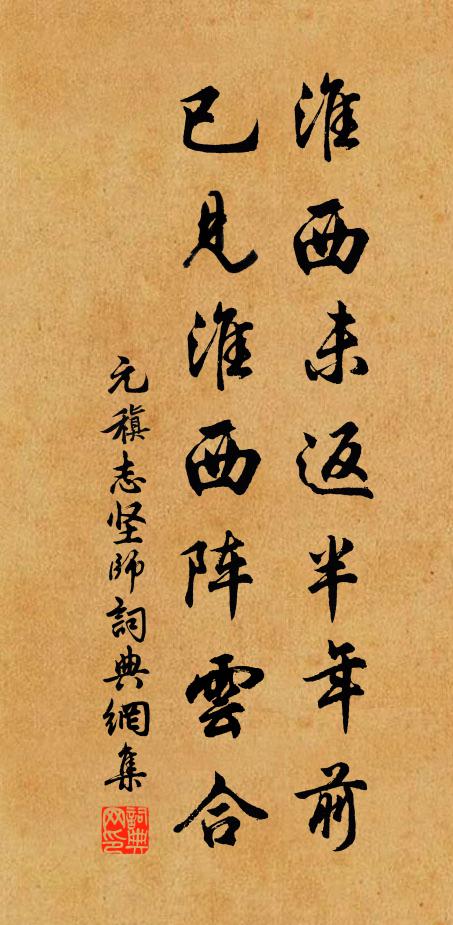 淮西未返半年前
已见淮西阵雲合
元稹志坚師詞典網集
詞典网印